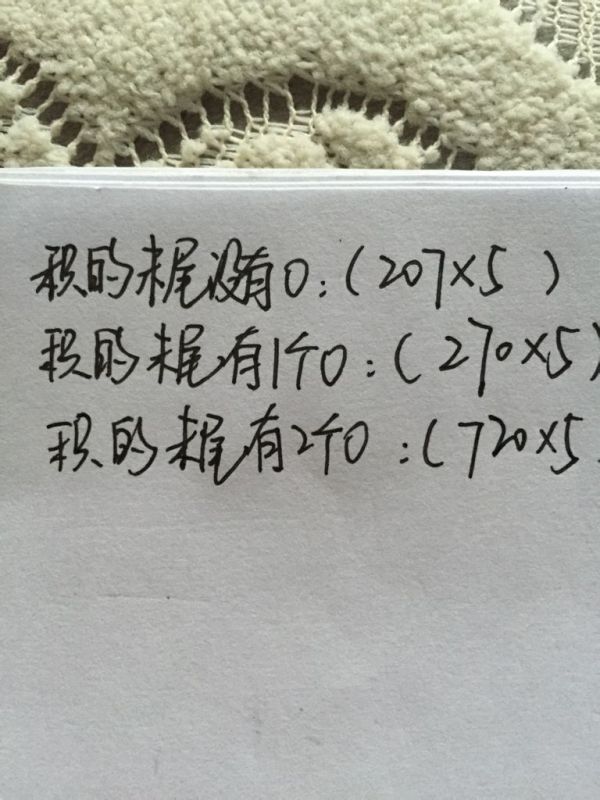 积的末尾没有0:(207×5)
积的末尾有1个0:(270×5)
积的末尾有2个0:(720×5